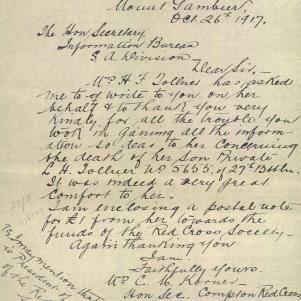 Mount Gambier,
Oct 26th 1917.
The Hon Secretary,
Information Bureau
S A Division -
Dear Sir, -
Mrs H F Tollner has asked
me to write to you on her
behalf & to thank you very
kindly for all the trouble you
took in gaining all the inform-
ation so dear to her concerning
the death of her Son Private
L H Tollner No 5655. of 27th Battln.
It was indeed a very great
Comfort to her.
I am enclosing a postal note
for £1 from her, towards the
funds of the Red Cross Society -
Again thanking you
I am.
Faithfully yours.
Mrs C. M.
Hon Sec. Compton Red Cross
P.S. I may mention that
is President of
of the Red